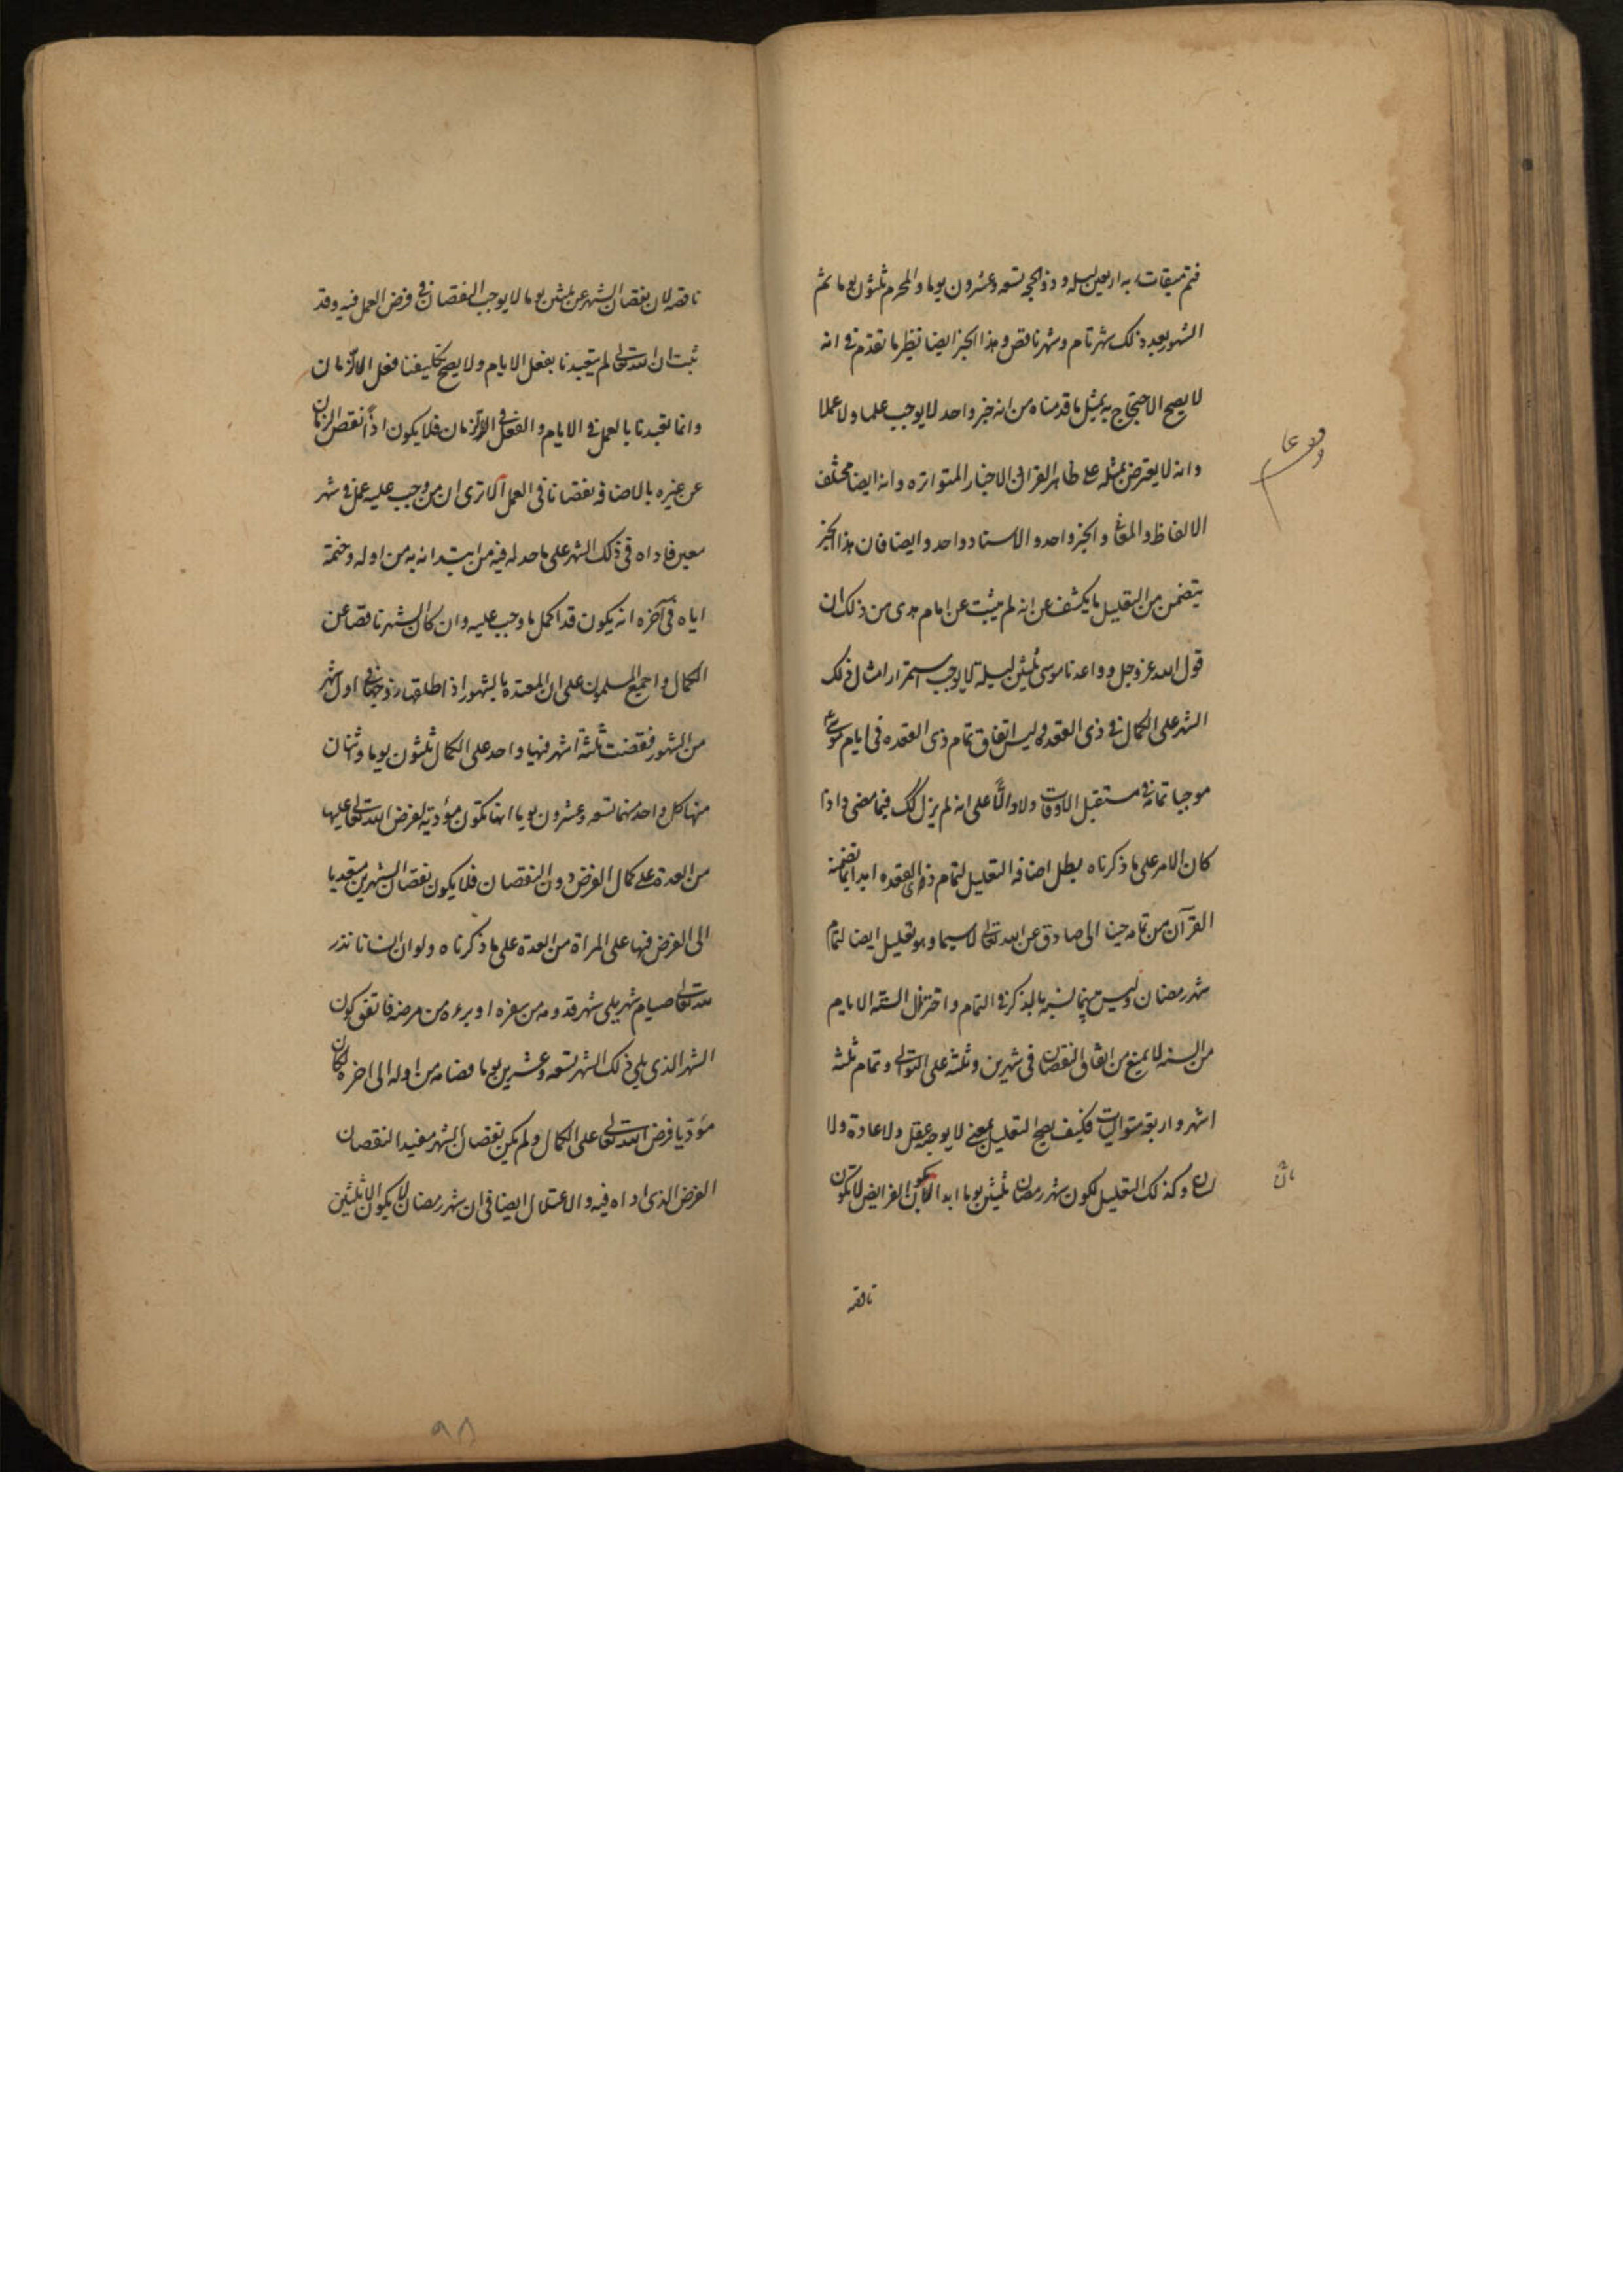 فتم ميقات ربه اربعين ليله وذوالحجه تسعه وعشرون يوما والمحرم ثلثون يوما ثم
الشهور بعد ذلك شهر تام وشهر ناقص وهذا الخبر ايضا نظير ما تقدم في انه
لا يصح الاحتجاج به بمثل ما قدمناه من انه خبر واحد لا يوجب علما ولا عملا
وانه لا يعترض بمثله على ظاهر القران والاخبار المتواتره وانه ايضا مختلف
الالفاظ والمعاني والخبر واحد والاسناد واحد وايضا فان هذا الخبر
يتضمن من التعليل ما يكشف عن انه لم يثبت عن امام هدى من ذلك ان
قول الله عز وجل وواعدنا موسى ثلثين ليلة لا يوجب استمرار امثال ذلك
الشهر على الكمال في ذى القعده وليس اتفاق تمام ذى القعده في ايام موسى ع
موجبا تمامه في مستقبل الاوقات ولا دالّا على انه لم يزل كك فيما مضى واذا
كان الامر على ما ذكرناه بطل اضافة التعليل لتمام ذى القعده ابدا بما تضمنه
القرآن من تمامه حينا الى صادق عن الله تعالى لا سيما وهو تعليل ايضا لتمام
شهر رمضان وليس بينهما نسبه بالذكر في التمام واختزال الستة الايام
من السنه لا يمنع من اتفاق النقصان في شهرين وثلثه على التوالي وتمام ثلثة
اشهر واربعة متواليات فكيف يصح التعليل بمعنى لا يوجبه عقل ولا عادة ولا
لسان وكذلك التعليل لكون شهر رمضان ثلثين يوما ابدا بكون الفرايض لا تكون
ناقصه
ناقصه لان نقصان الشهر عن ثلثين يوما لا يوجب النقصان في فرض العمل فيه وقد
ثبت ان الله تعالى لم يتعبدنا بفعل الايام ولا يصح تكليفنا فعل الازمان
وانما تعبدنا بالعمل في الايام والفعل في الازمان فلا يكون اذاً نقص الزمان
عن غيره بالاضافه نقصانا في العمل الا ترى ان من وجب عليه عمل في شهر
معين فاداه في ذلك الشهر على ما حد له فيه من ابتدائه به من اوله وختمة
اياه في آخره انه يكون قد اكمل ما وجب عليه وان كان الشهر ناقصا عن
الكمال واجمع المسلمون على ان المعتده بالشهور اذا طلقها زوجها في اول شهر
من الشهور فقضت ثلثة اشهر فيها واحد على الكمال ثلثون يوما واثنان
منها كل واحد منهما تسعه وعشرون يوما انها تكون مؤدية لفرض الله تعالى عليها
من العدة على كمال الفرض دون النقصان فلا يكون نقصان الشهرين متعديا
الى الفرض فيها على المراة من العدة على ما ذكرناه ولو ان انسانا نذر
لله تعالى صيام شهر يلى شهر قدومه من سفره او برءه من مرضه فاتفق كون
الشهر الذى يلي ذلك الشهر تسعه وعشرين يوما فصامه من اوله الى اخره لكان
مؤديا فرض الله تعالى على الكمال ولم يكن نقصان الشهر مفيدا لنقصان
الفرض الذى اداه فيه والاعتلال ايضا في ان شهر رمضان لا يكون الا ثلثين
۹۸